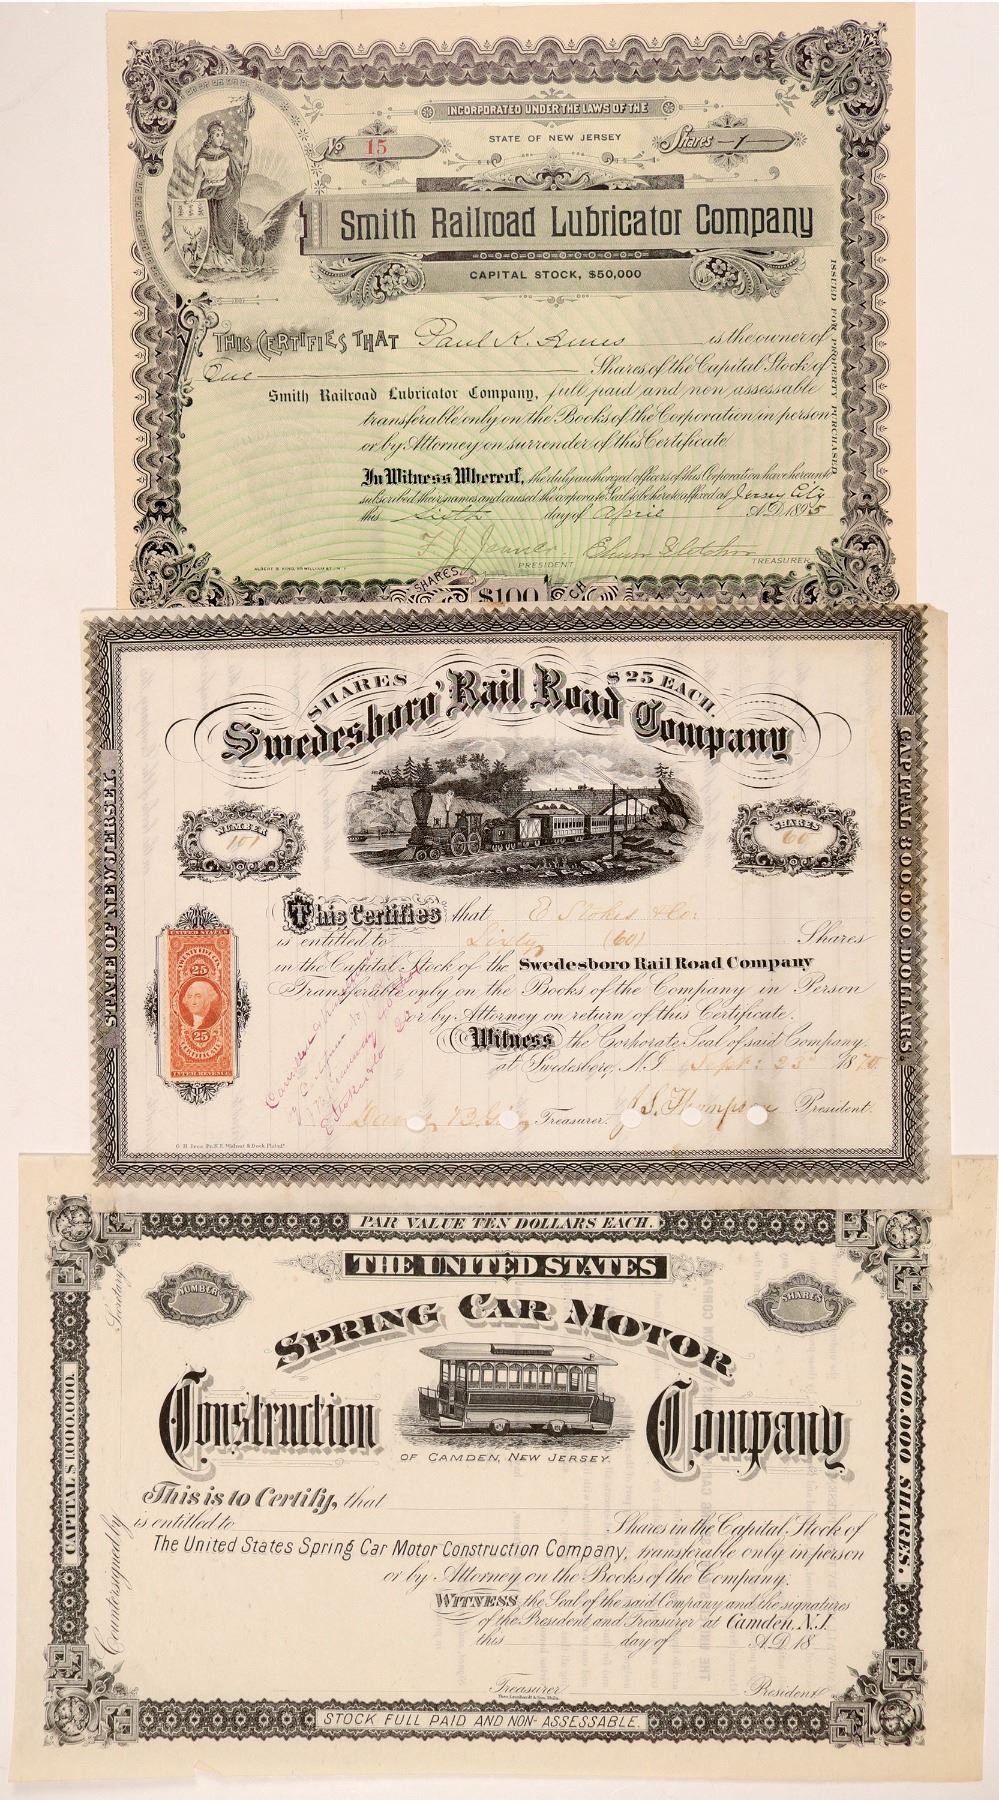 INCORPORATED UNDER THE LAWS OF THE
STATE OF NEW JERSEY
No 15
Shares 1
Smith Railroad Lubricator Company
CAPITAL STOCK, $50,000
ISSUED FOR PROPERTY PURCHASED
THIS CERTIFIES THAT Paul K. Ames is the owner of
One Shares of the Capital Stock of
Smith Railroad Lubricator Company, full paid and non assessable
transferable only on the Books of the Corporation in person
or by Attorney on surrender of this Certificate
In Witness Whereof, the duly authorized officers of this Corporation have hereunto
subscribed their names and caused the corporate Seal to be hereto affixed at Jersey City
this Sixth day of April A.D. 1895
PRESIDENT
TREASURER
ALBERT B. KING, 89 WILLIAM ST. N.Y.
SHARES $100 EACH
SHARES $25 EACH.
Swedesboro' Rail Road Company
STATE OF NEW JERSEY.
CAPITAL 300,000 DOLLARS.
NUMBER
101
SHARES
60
This Certifies that E Stokes & Co:
is entitled to Sixty (60) Shares
in the Capital Stock of the Swedesboro Rail Road Company
Transferable only on the Books of the Company in Person
or by Attorney on return of this Certificate.
Witness the Corporate Seal of said Company
at Swedesboro, N.J. Sept: 23d 1870
Treasurer. J. S. Thompson President.
UNITED STATES
TWENTY FIVE CENTS
25
25
CERTIFICATE
INTER. REVENUE
PAR VALUE TEN DOLLARS EACH.
THE UNITED STATES
NUMBER
SHARES
SPRING CAR MOTOR
Construction Company
OF CAMDEN, NEW JERSEY.
CAPITAL $1,000,000.
100,000 SHARES.
Countersigned by
Secretary
This is to Certify, that
is entitled to Shares in the Capital Stock of
The United States Spring Car Motor Construction Company, transferable only in person
or by Attorney on the Books of the Company.
WITNESS the Seal of the said Company and the signatures
of the President and Treasurer at Camden, N.J.
this day of A.D. 18
Treasurer
President
Theo. Leonhardt & Son, Phila.
STOCK FULL PAID AND NON-ASSESSABLE.